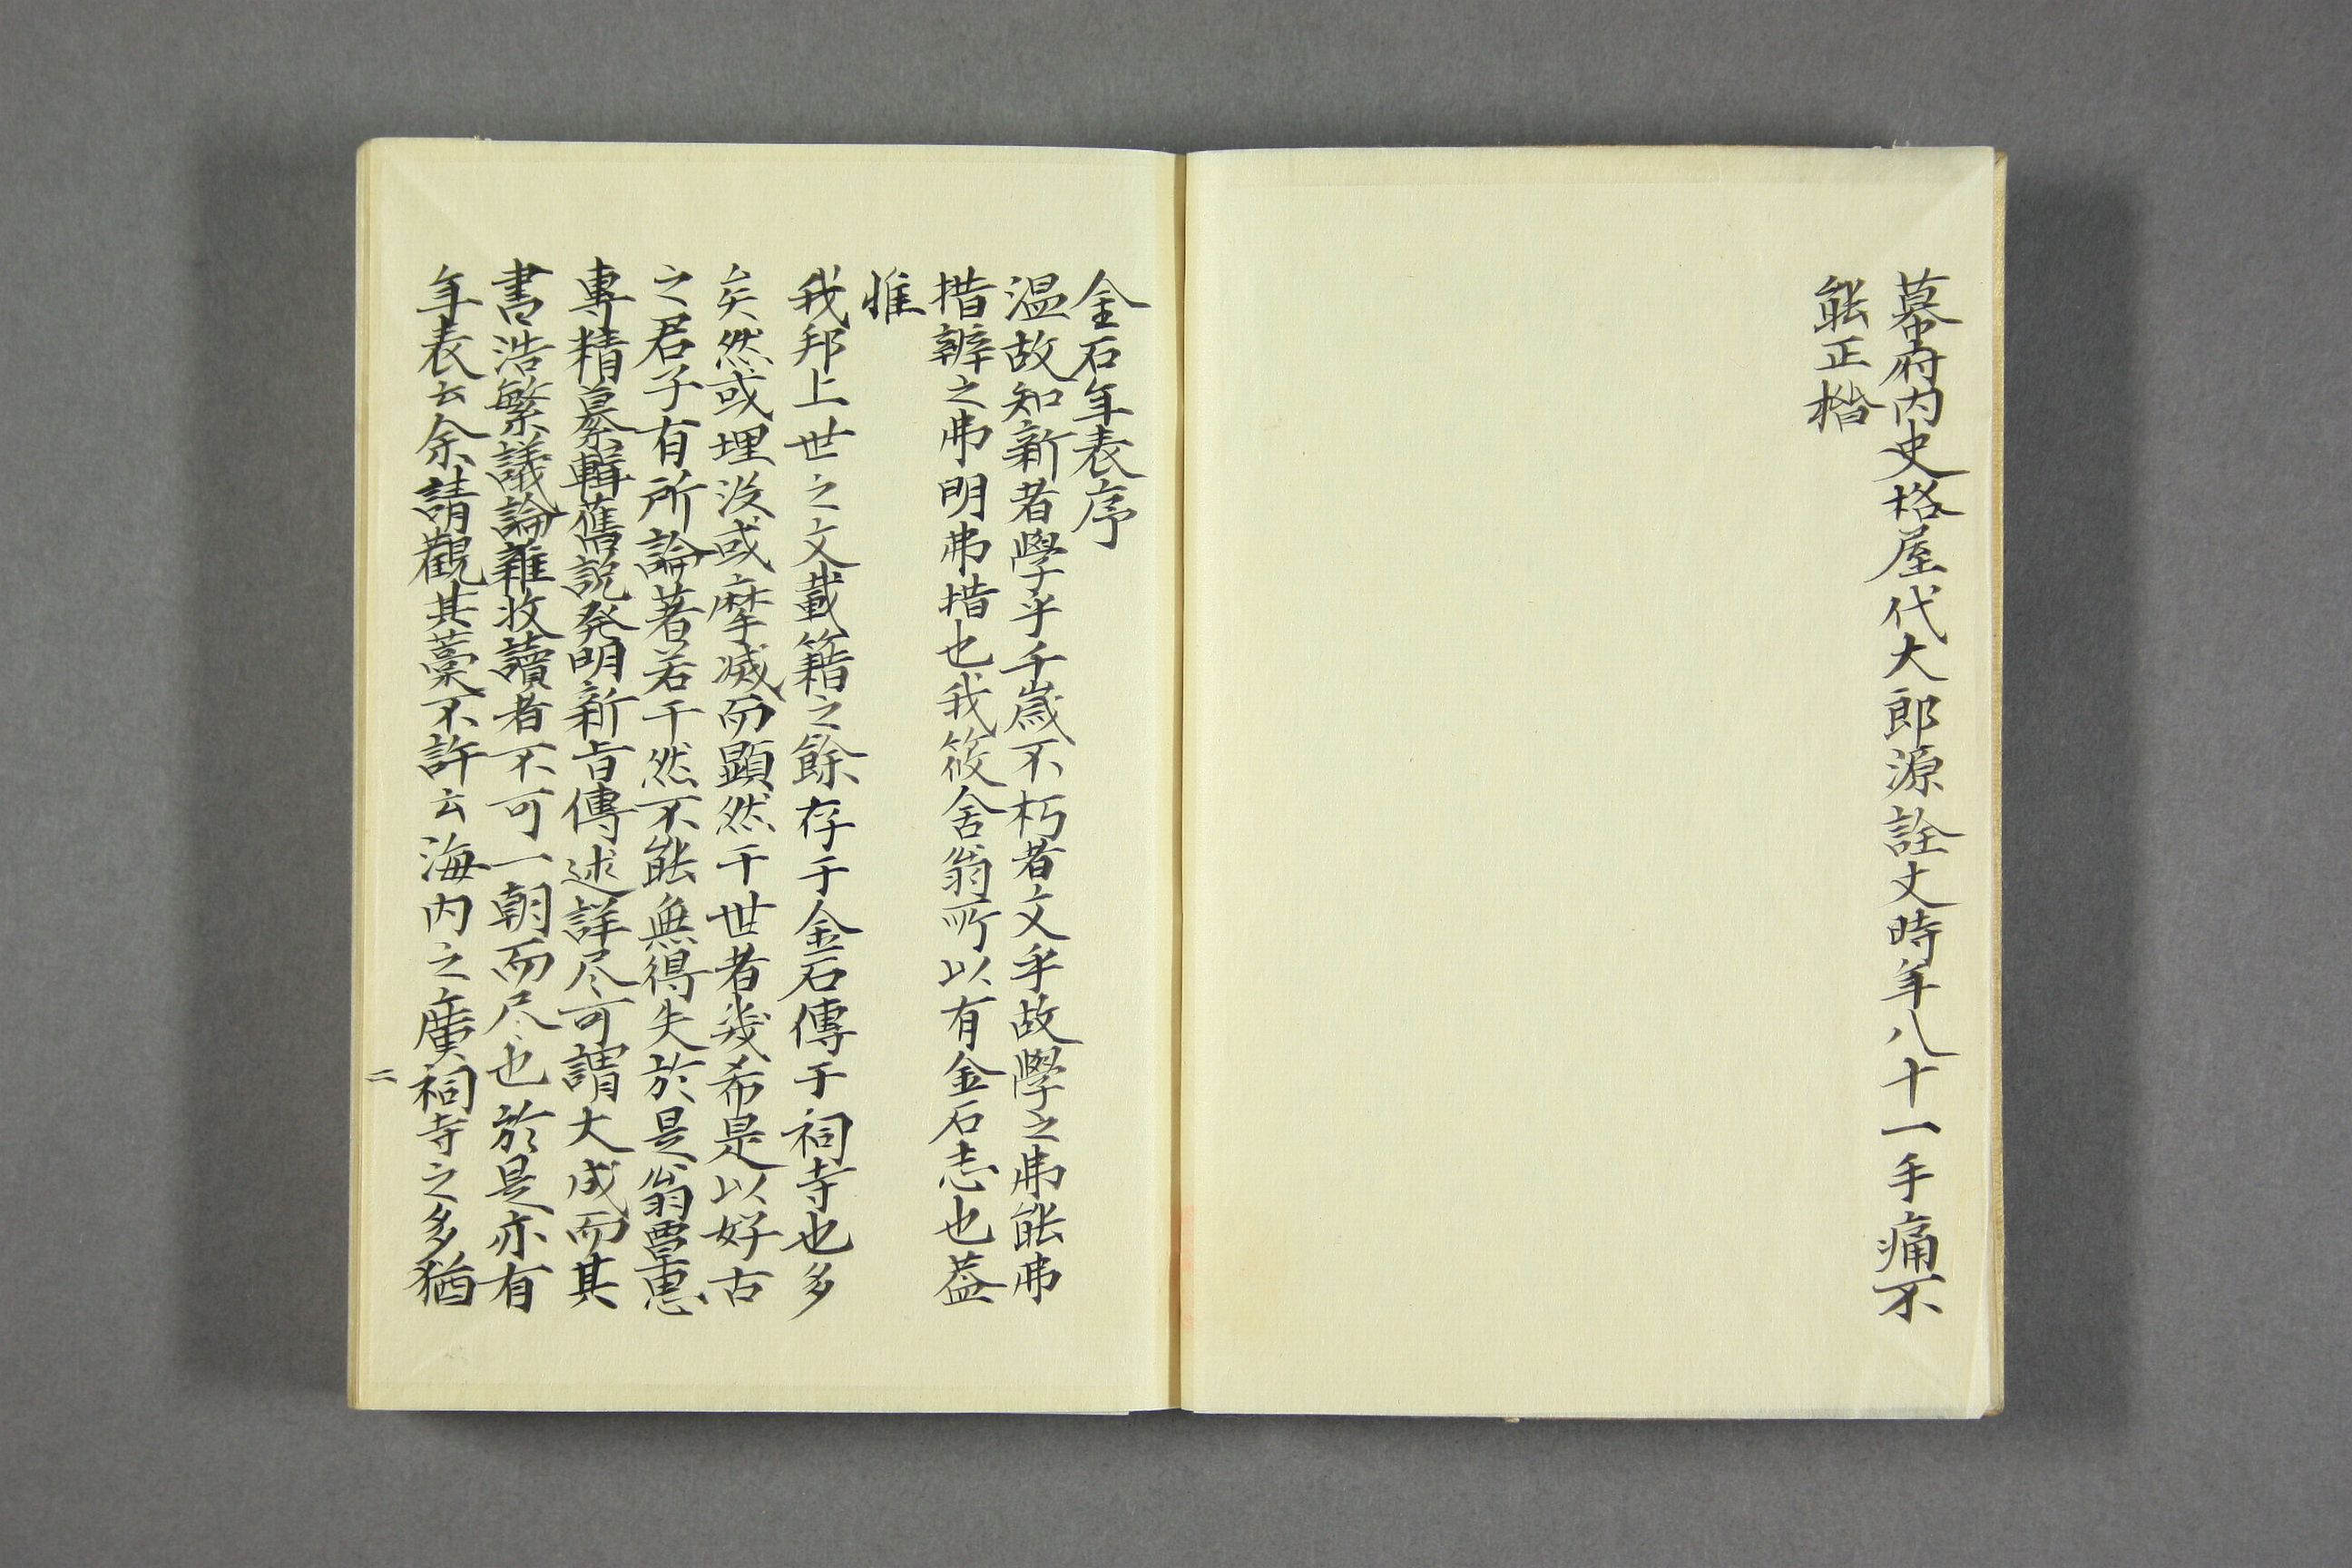 幕府内史格屋代大郎源詮丈時年八十一手痛不
能正楷
金石年表序
温故知新者學乎千歳不朽者文乎故學之弗能弗
措辨之弗明弗措也我筱舍翁所以有金石志也葢
惟
我邦上世之文載籍之餘存于金石傳于祠寺也多
矣然或埋没或摩滅而顕然于世者幾希是以好古
之君子有所論著若干然不能無得失於是翁覃思
專精纂輯舊説発明新旨傳述詳尽可謂大成而其
書浩繁議論雜收讀者不可一朝而尽也於是亦有
年表云余請觀其藁不許云海内之廣祠寺之多猶
二